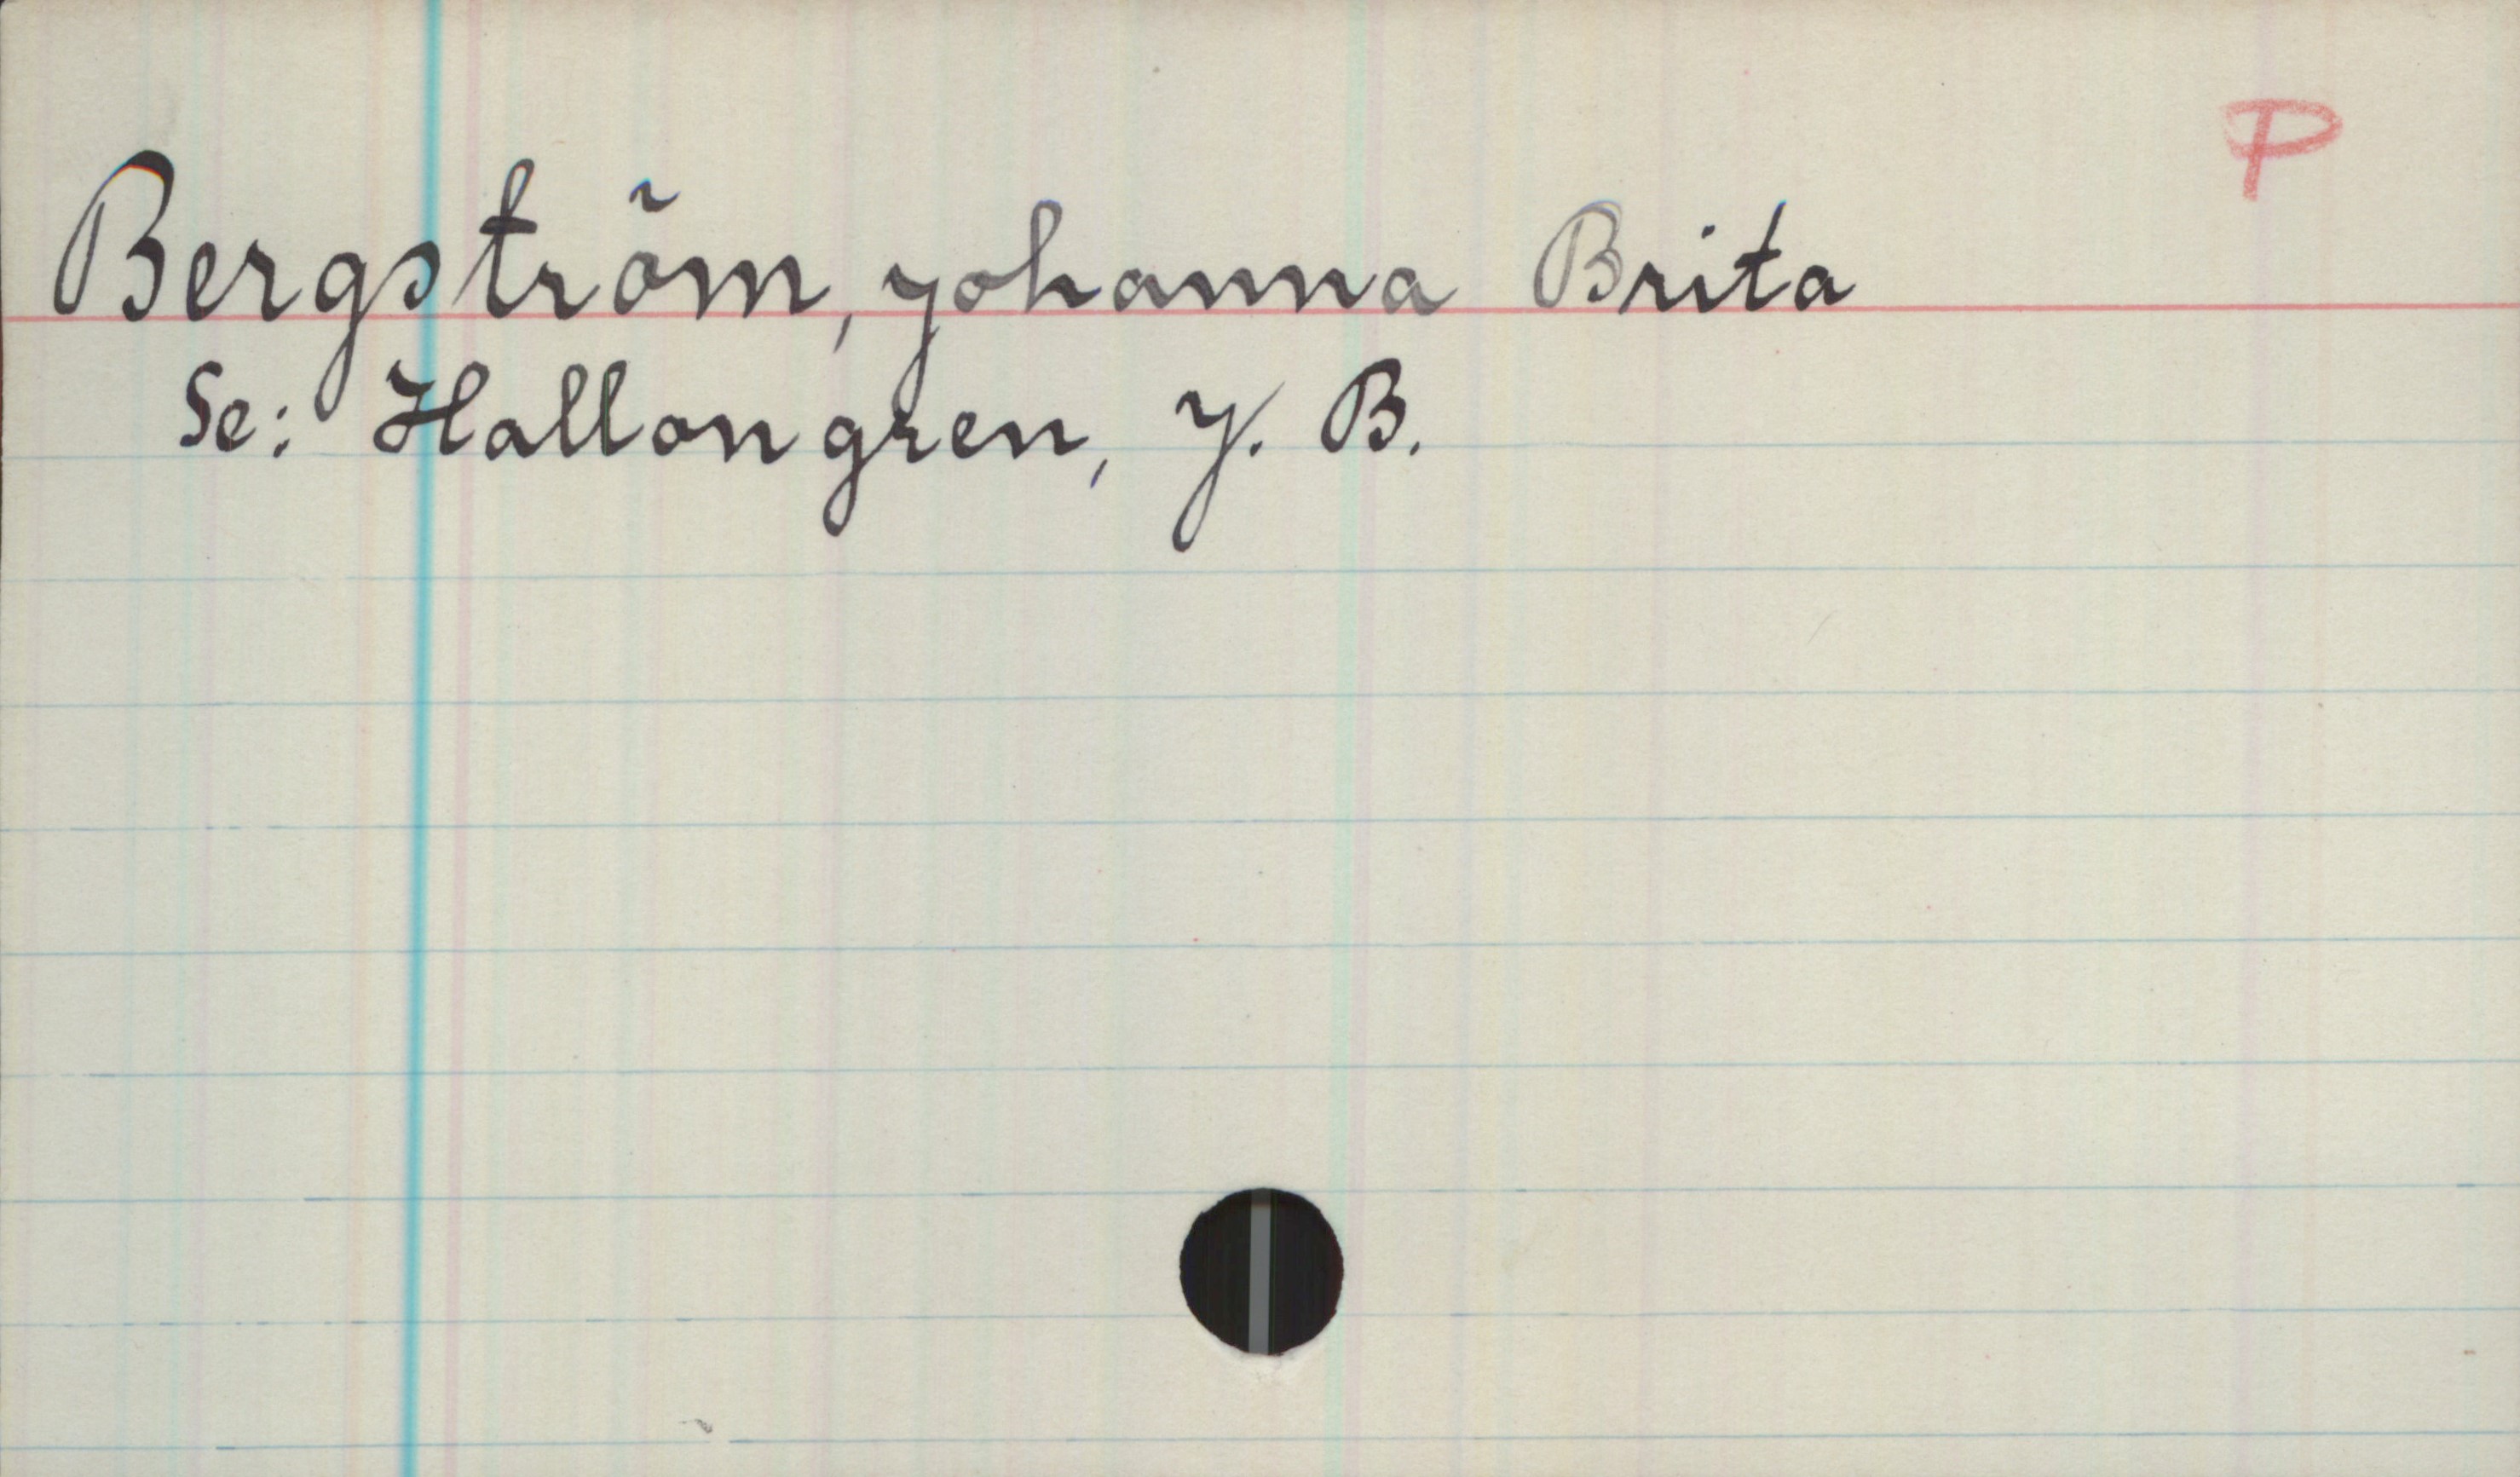 P
Bergström, Johanna Brita
Se: Hallongren, J. B.